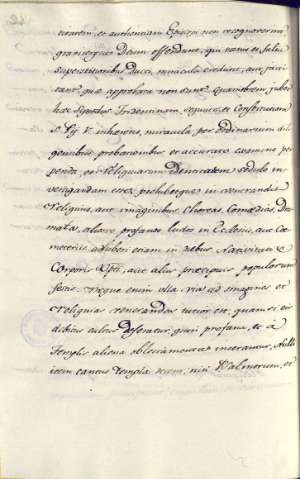 turatem, et authoritatem Episcopi non recognoverint
graviterque Deum offendunt, qui vanis et falsis
superstitionibus ducti, miracula credunt, aut jacti
tant, quæ approbata non sunt. Quamobrem, jubet
hæc Synodus Tridentinam, sequuta, et Constitutionem
S. Pij V. inhærens, miracula, per ordinarium dili
gentibus, probationibus et accurato examine per
penda, et Reliquiarum identitatem sedulo in
vestigandam esse, prohibetque in venerandis
Reliquiis, aut imaginibus Choreas, Comœdias, Dra
mata, aliove profanos ludos in Eclesiis, aut Cœ
meteriis, adhiberi etiam in diebus Nativitatis
Corporis Xpti, aut aliis præcipuis populorum
festis. Neque enim ulla via ad imagines et
Reliquias venerandas tutior est, quam si eis
debitus cultus deferatur, quin profana, et a
Templis aliena oblectamenta inserantur, Nulli
item cantus templa nisi Psalmorum, et